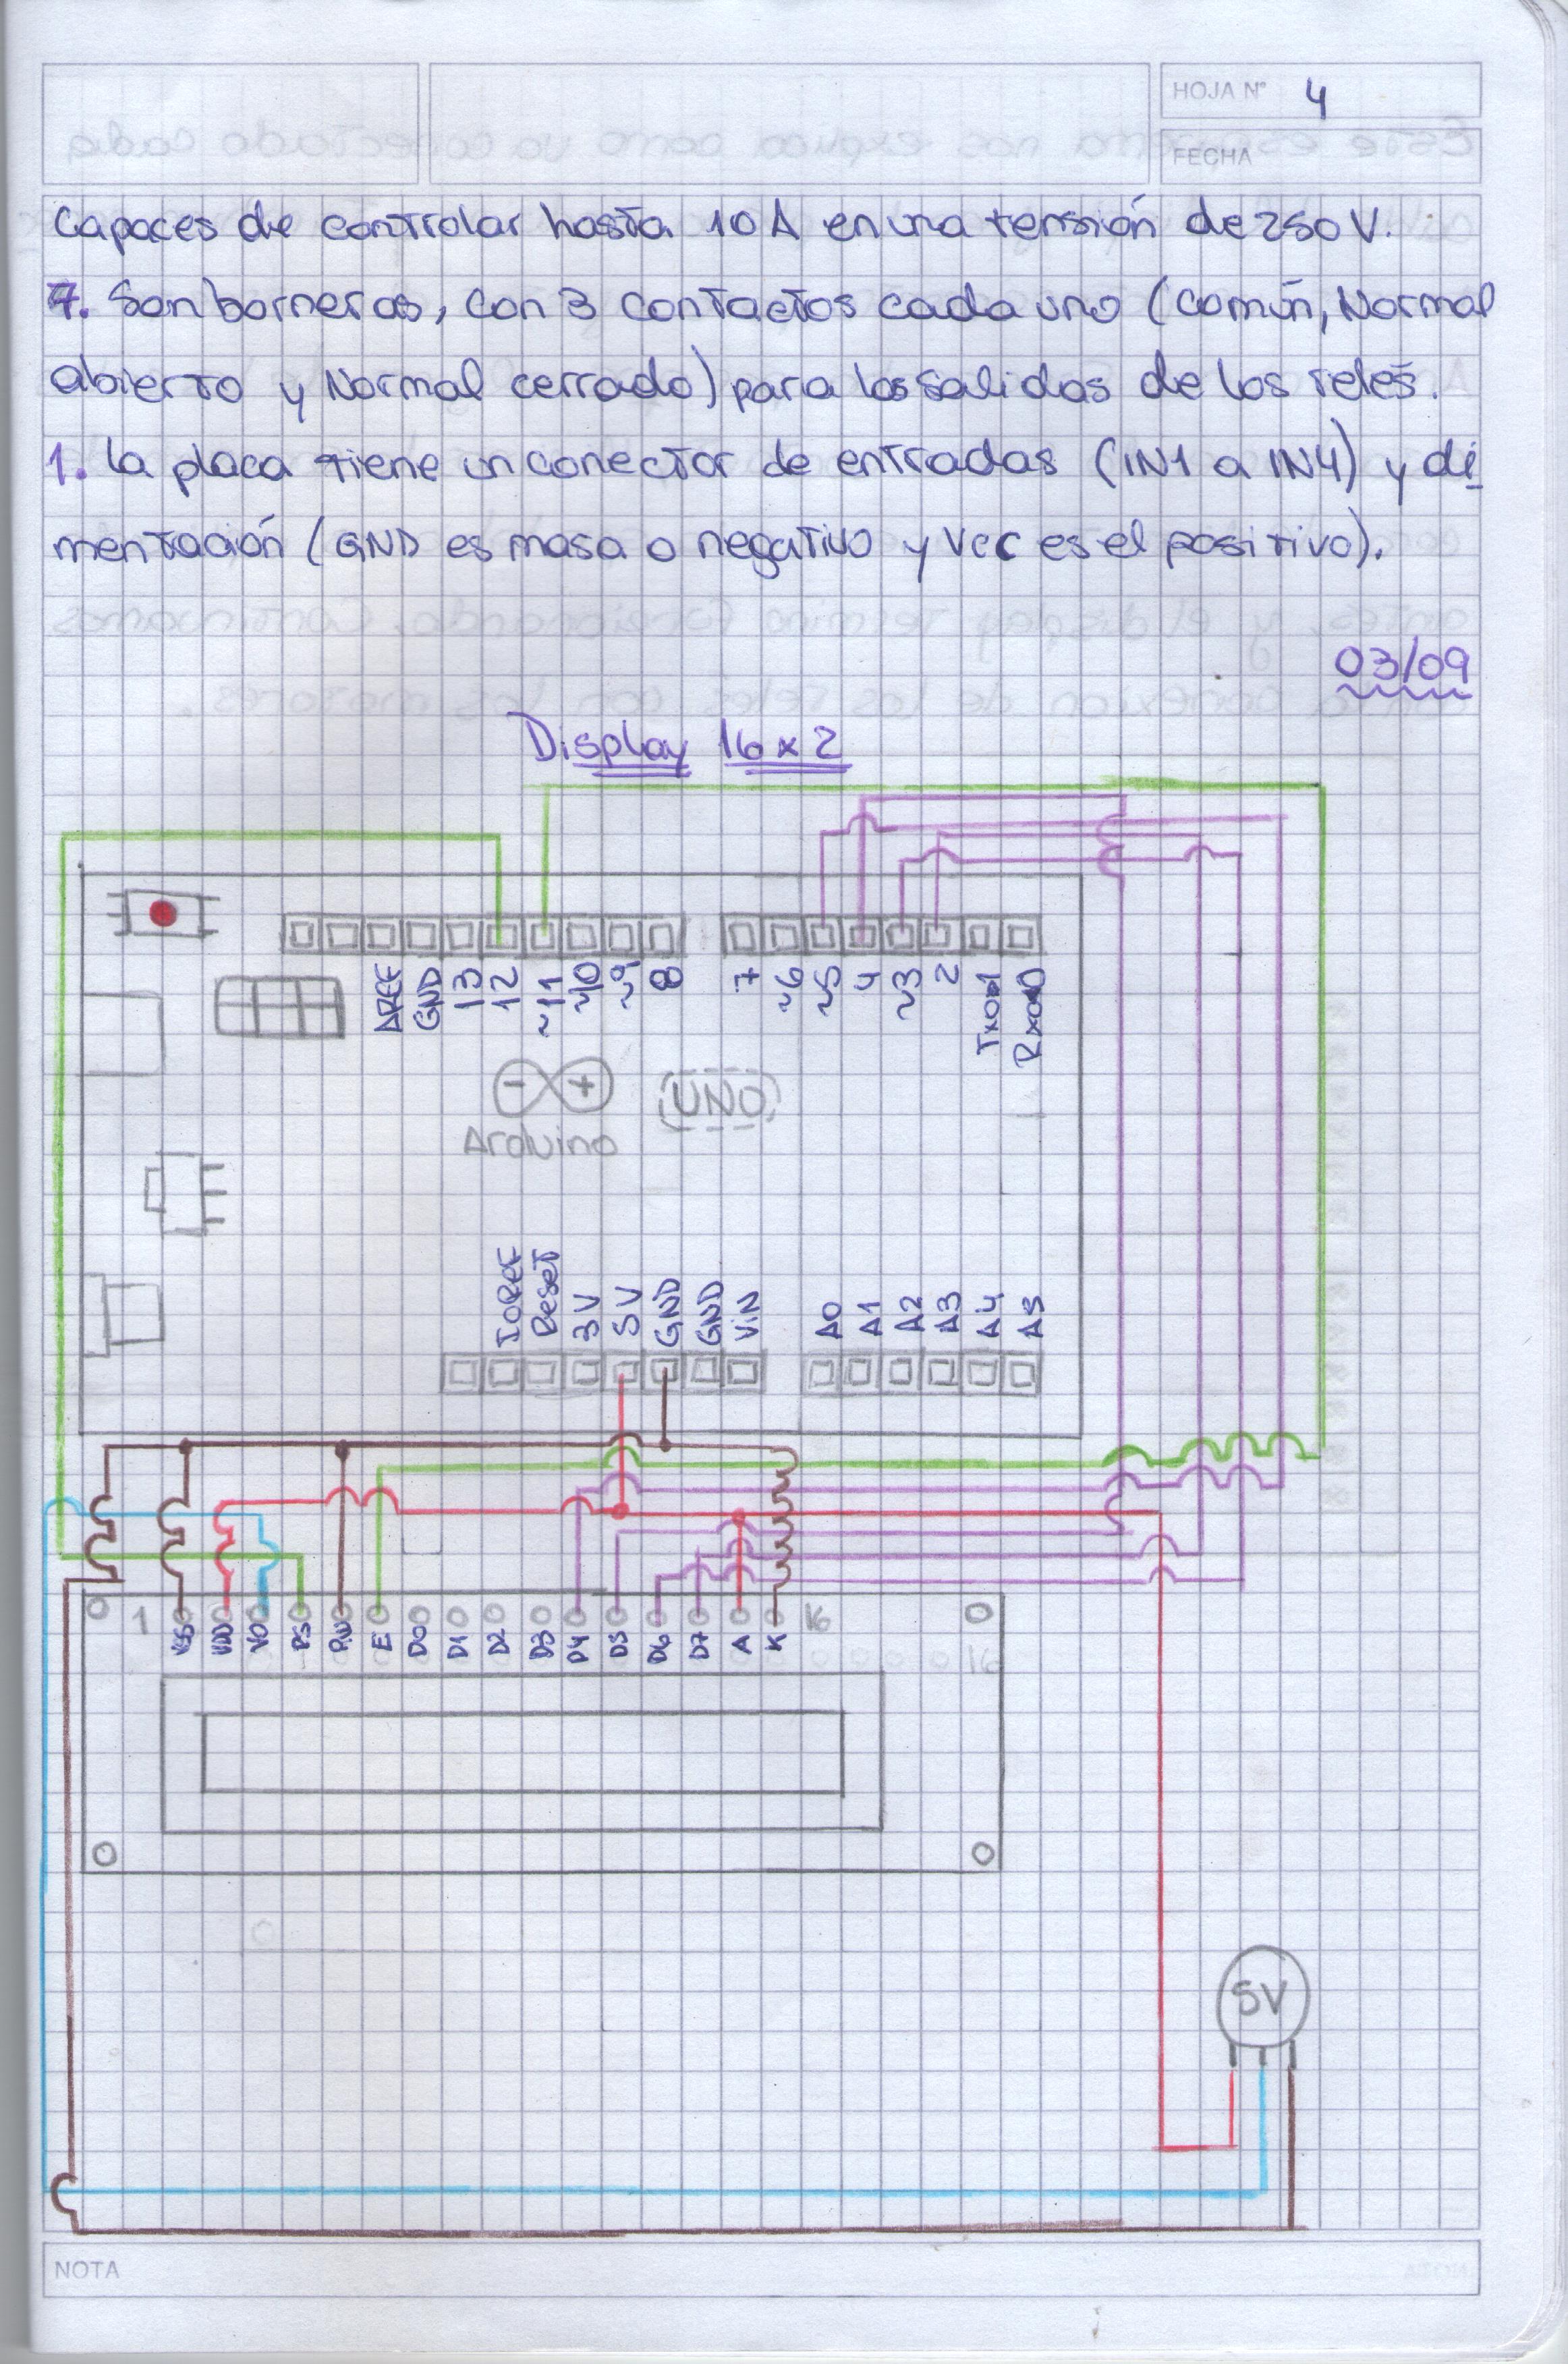 HOJA N° 4
FECHA
Capaces de controlar hasta 10 A en una tensión de 250 V.
7. Son borneras, con 3 contactos cada uno (común, Normal
abierto y Normal cerrado) para las salidas de los relés.
1. la placa tiene un conector de entradas (IN1 a IN4) y ali
mentación (GND es masa o negativo y Vcc es el positivo).
03/09
Display 16 x 2
AREF GND 13 12 ~11 ~10 ~9 8 7 ~6 ~5 4 ~3 2 Tx01 Rx00
- + UNO
Arduino
IOREF Reset 3V 5V GND GND ViN A0 A1 A2 A3 A4 A5
1 VSS VDD VO RS RW E D0 D1 D2 D3 D4 D5 D6 D7 A K 16
16
5V
NOTA